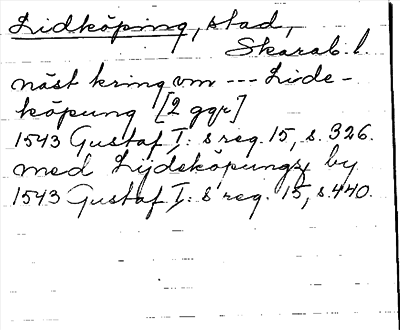 Lidköping, stad,
Skarab. l.
näst kring vm --- Lide-
köpung [2 ggr]
1543 Gustaf I: s reg. 15, s. 326.
med Lijdeköpungz by
1543 Gustaf I: s reg. 15, s. 440.